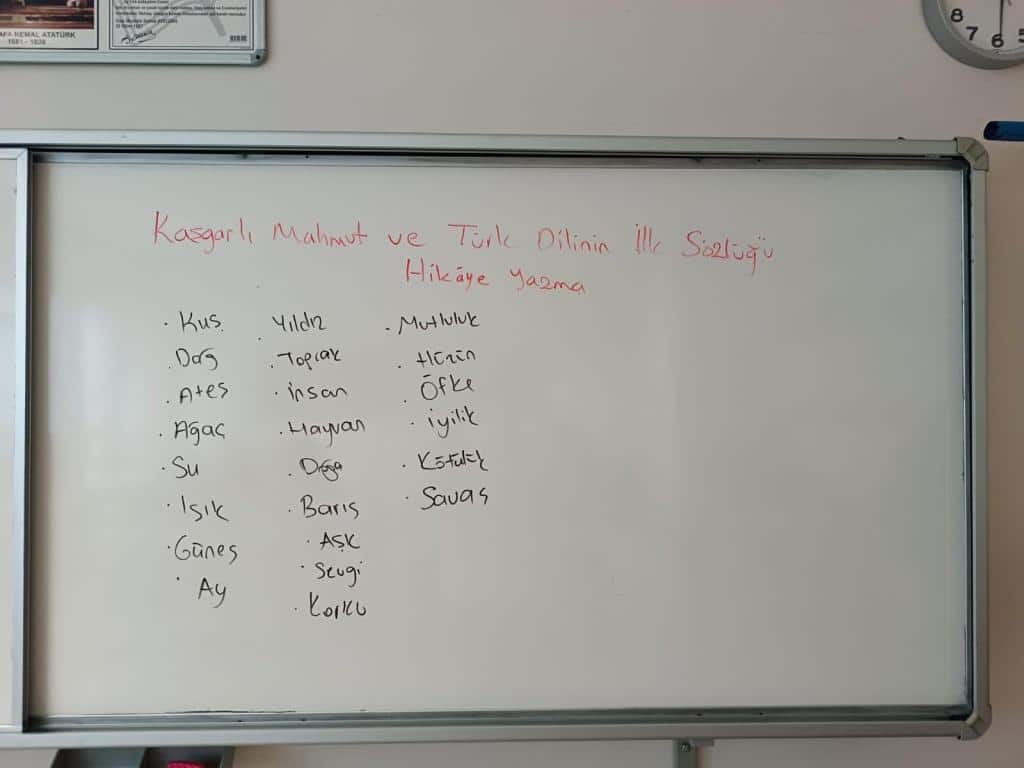 AFA KEMAL ATATÜRK
1881 - 1938
8
7
6
5
Kaşgarlı Mahmut ve Türk Dilinin İlk Sözlüğü
Hikâye Yazma
· Kuş
· Dağ
· Ateş
· Ağaç
· Su
· Işık
· Güneş
· Ay
· Yıldız
· Toprak
· İnsan
· Hayvan
· Doğa
· Barış
· Aşk
· Sevgi
· Korku
· Mutluluk
· Hüzün
· Öfke
· İyilik
· Kötülük
· Savaş